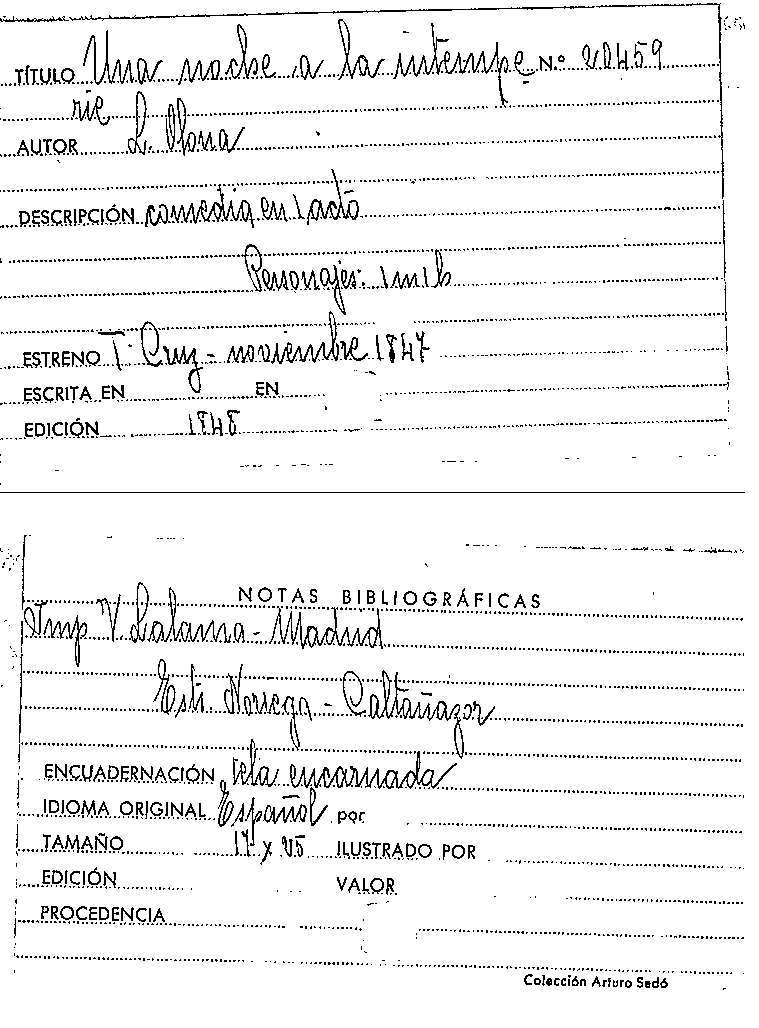 TÍTULO Una noche a la intempe N.º 20459
rie
AUTOR L. Olona
DESCRIPCIÓN comedia en 1 acto
Personajes: 1 m 1 h
ESTRENO T. Cruz - noviembre 1847
ESCRITA EN EN
EDICIÓN 1848
NOTAS BIBLIOGRÁFICAS
Imp V. Lalama - Madrid
Est: Noriega - Caltañazor
ENCUADERNACIÓN tela encarnada
IDIOMA ORIGINAL Español por
TAMAÑO 17 x 25 ILUSTRADO POR
EDICIÓN VALOR
PROCEDENCIA
Colección Arturo Sedó